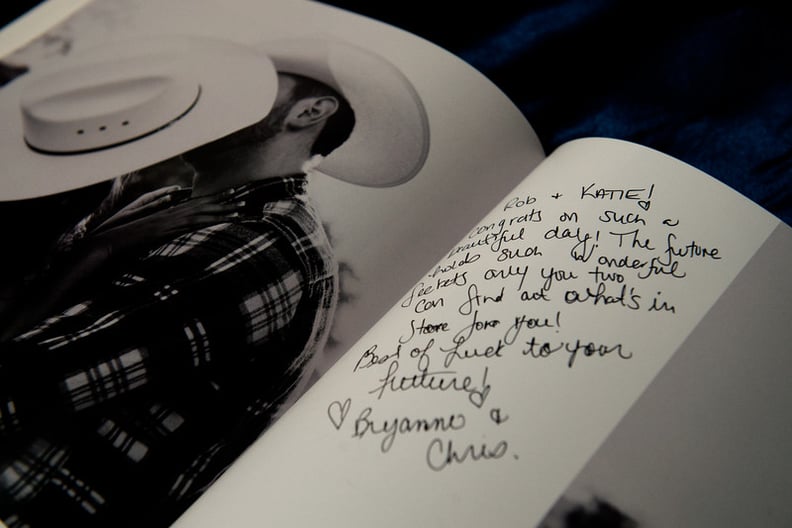 Rob & KATIE!
Congrats on such a
beautiful day! The future
holds such wonderful
secrets only you two
can find out what's in
store for you!
Best of Luck to your
future!
♡ Bryanne &
Chris.